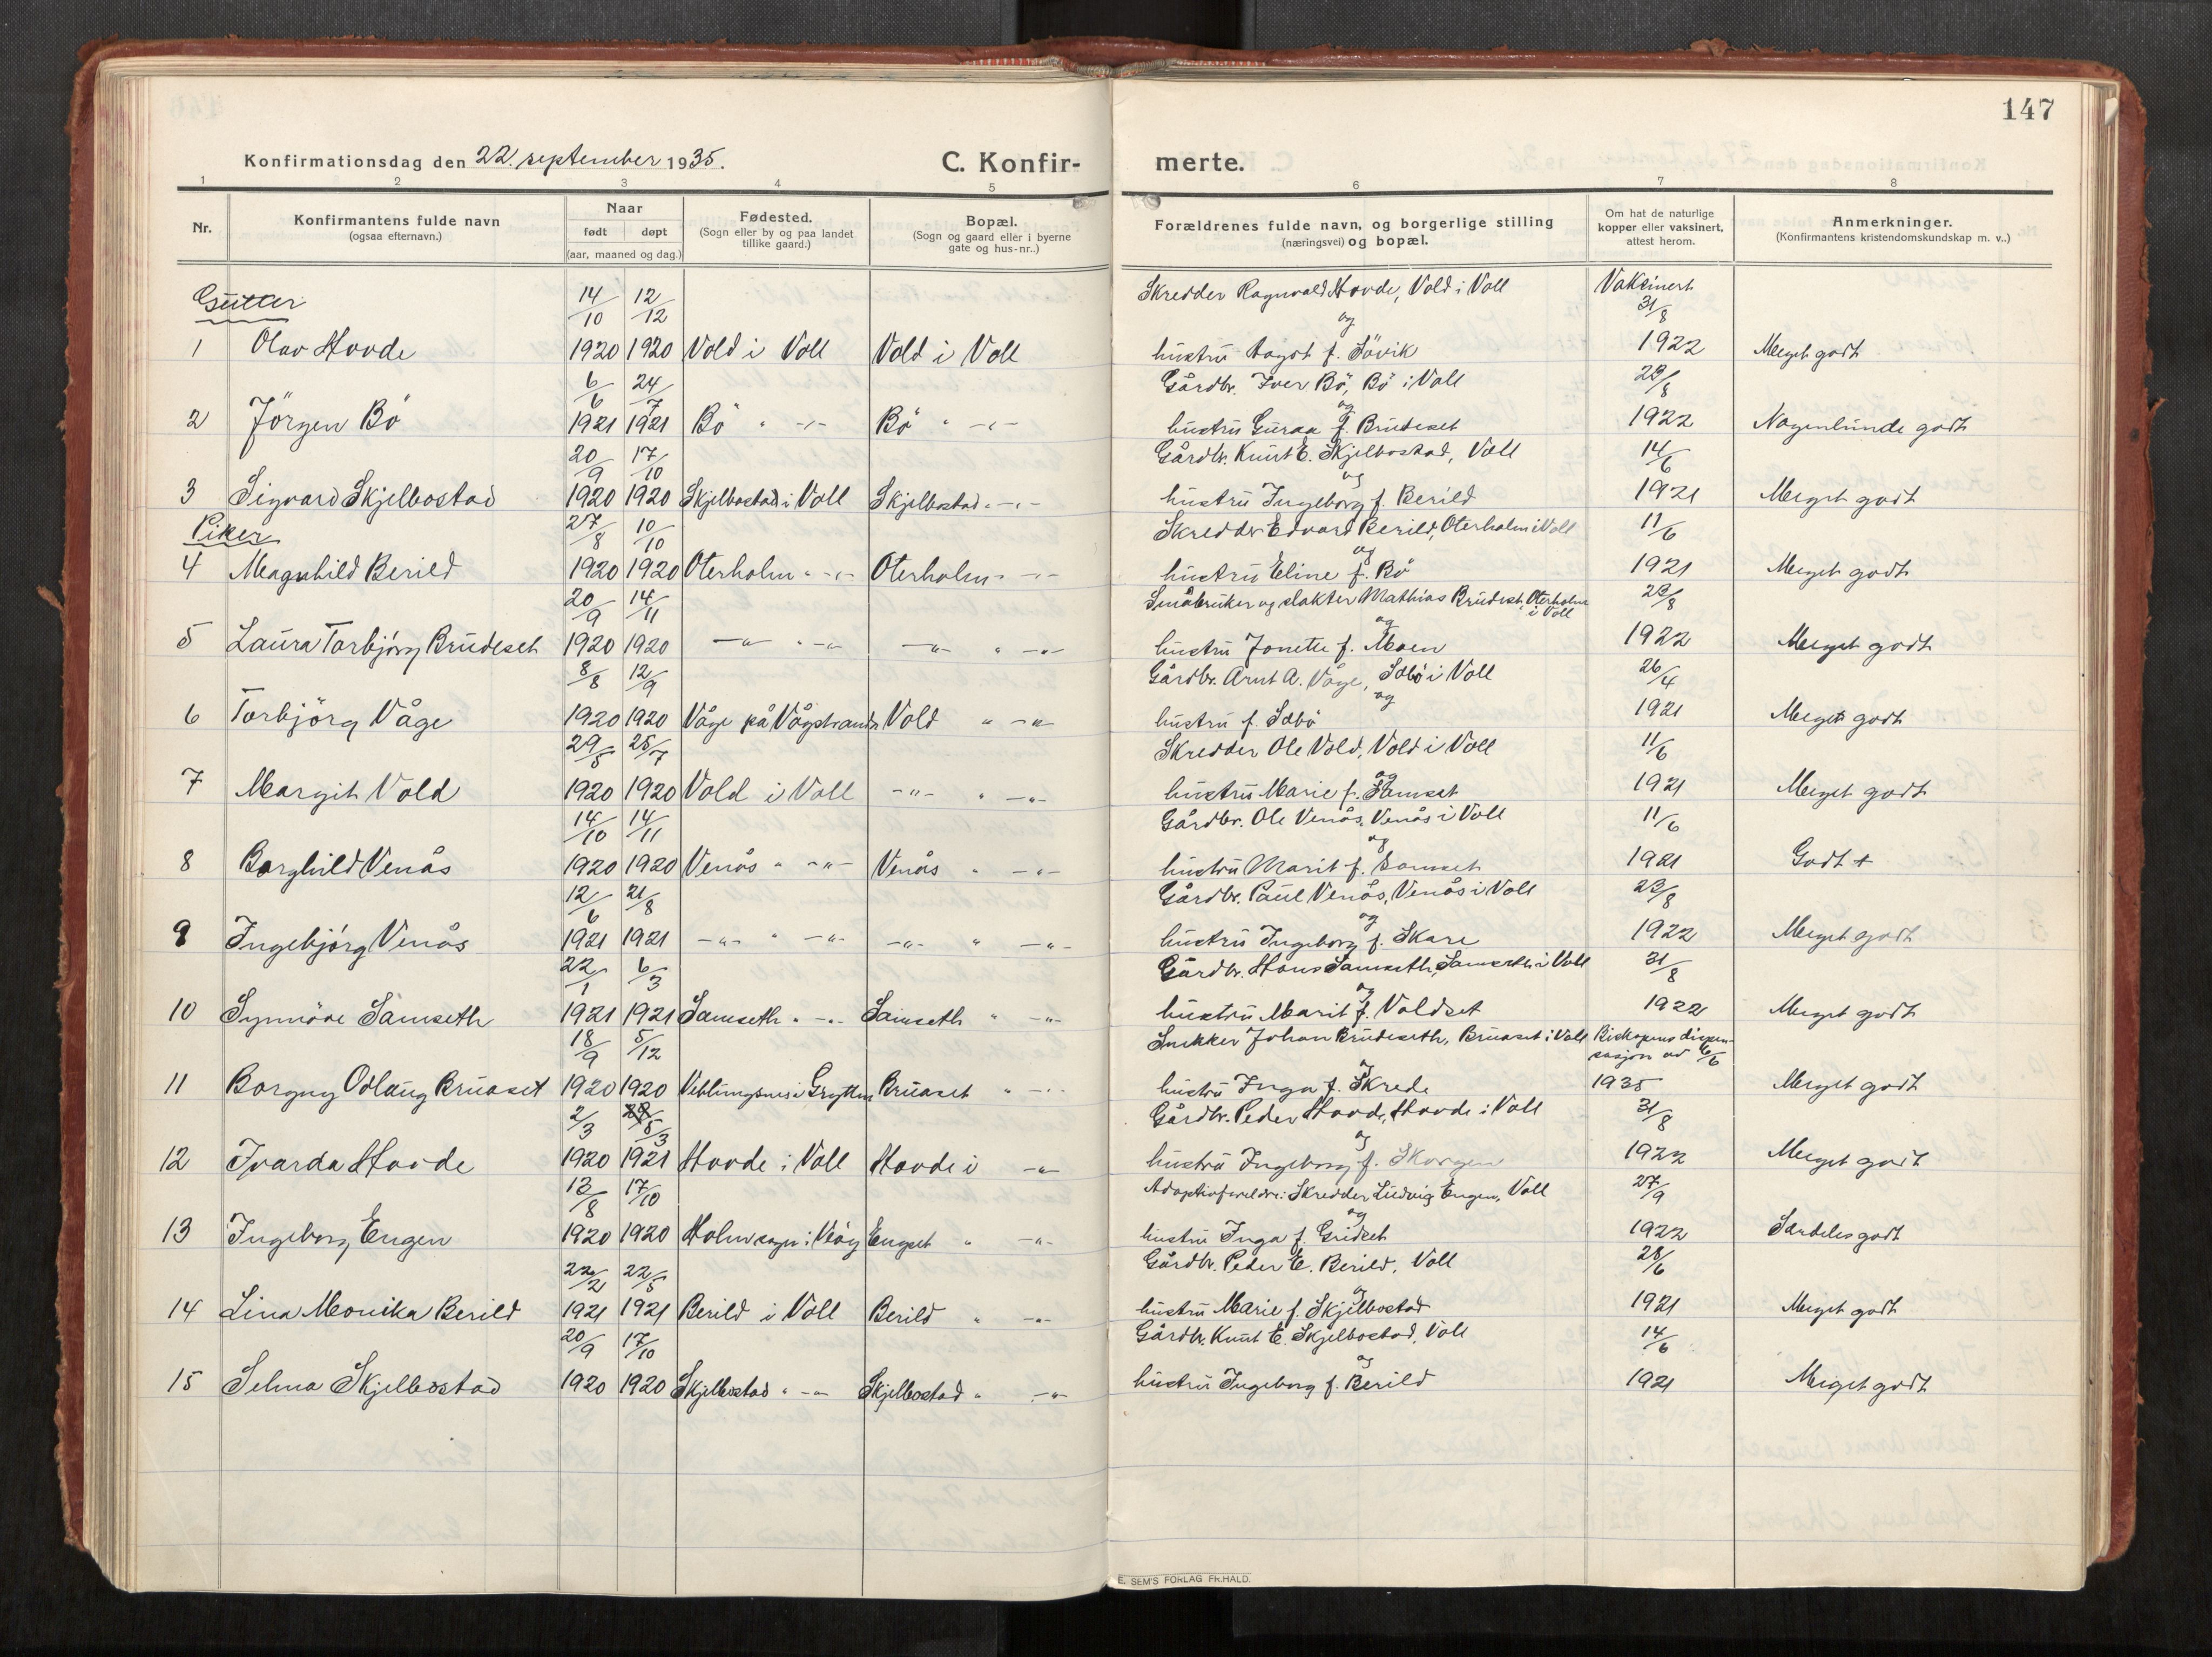 147
Konfirmationsdag den 22. september 1935.
C. Konfir-
merte.
1 2 3 4 5 6 7 8
Nr.
Konfirmantens fulde navn
(ogsaa efternavn.)
Naar
født døpt
(aar, maaned og dag.)
Fødested.
(Sogn eller by og paa landet
tillike gaard.)
Bopæl.
(Sogn og gaard eller i byerne
gate og hus-nr..)
Forældrenes fulde navn, og borgerlige stilling
(næringsvei) og bopæl.
Om hat de naturlige
kopper eller vaksinert,
attest herom.
Anmerkninger.
(Konfirmantens kristendomskundskap m. v..)
Gutter 14/10 12/12 Skredder Ragnvald Hovde, Vold i Voll Vaksinert 31/8
og
1 Olav Hovde 1920 1920 Vold i Voll Vold i Voll hustru Aagot f. Sövik 1922 Meget godt
6/6 24/7 Gårdbr. Iver Bö, Bö i Voll 23/8
og
2 Jörgen Bö 1921 1921 Bö " -"- Bö " -"- hustru Guraa f. Brudeset 1922 Nogenlunde godt
20/9 17/10 Gårdbr. Knut E. Skjelbostad, Voll 14/6
og
3 Sigvard Skjelbostad 1920 1920 Skjelbostad i Voll Skjelbostad " -"- hustru Ingeborg f. Berild 1921 Meget godt
Piker 27/8 10/10 Skredder Edvard Berild, Oterholm i Voll 11/6
og
4 Magnhild Berild 1920 1920 Oterholm " -"- Oterholm " -"- hustru Eline f. Bö 1921 Meget godt
20/9 14/11 Småbruker og slakter Mathias Brudeset, Oterholm 23/8
i Voll
og
5 Laura Torbjörg Brudeset 1920 1920 -"- " -"- -"- " -"- hustru Jonette f. Moen 1922 Meget godt
8/8 12/9 Gårdbr. Arnt A. Våge, Solbö i Voll 26/4
og
6 Torbjörg Våge 1920 1920 Våge på Vågstranda Vold " -"- hustru f. Solbö 1921 Meget godt
29/5 25/7 Skredder Ole Vold, Vold i Voll 11/6
og
7 Margit Vold 1920 1920 Vold i Voll -"- " -"- hustru Marie f. Samset 1921 Meget godt
14/10 14/11 Gårdbr. Ole Venås, Venås i Voll 11/6
og
8 Borghild Venås 1920 1920 Venås " -"- Venås " -"- hustru Marit f. Samset 1921 Godt +
12/6 21/8 Gårdbr. Paul Venås, Venås i Voll 23/8
og
9 Ingebjörg Venås 1921 1921 -"- " -"- -"- " -"- hustru Ingeborg f. Skare 1922 Meget godt
22/1 6/3 Gårdbr. Hans Samseth, Samseth i Voll 31/8
og
10 Synnöve Samseth 1921 1921 Samseth " -"- Samseth " -"- hustru Marit f. Voldset 1922 Meget godt
18/9 5/12 Snekker Johan Brudeseth, Bruaset i Voll Biskopens dispen-
sasjon av 6/6
og
11 Borgny Odlaug Bruaset 1920 1920 Veblungsnes i Grytten Bruaset " -"- hustru Inga f. Skrede 1935 Meget godt
2/3 5/3 Gårdbr. Peder Hovde, Hovde i Voll 31/8
og
12 Ivarda Hovde 1920 1921 Hovde i Voll Hovde i -"- hustru Ingeborg f. Skorgen 1922 Meget godt
13/8 17/10 Adoptivforeldre: Skredder Ludvig Engen, Voll 27/9
og
13 Ingeborg Engen 1920 1920 Holm sogn i Veöy Engset " -"- hustru Inga f. Gridset 1922 Særdeles godt
22/2 22/5 Gårdbr. Peder E. Berild, Voll 28/6
og
14 Lina Monika Berild 1921 1921 Berild i Voll Berild " -"- hustru Marie f. Skjelbostad 1921 Meget godt
20/9 17/10 Gårdbr. Knut E. Skjelbostad, Voll 14/6
og
15 Selma Skjelbostad 1920 1920 Skjelbostad " -"- Skjelbostad " -"- hustru Ingeborg f. Berild 1921 Meget godt
E. SEM'S FORLAG FR.HALD.